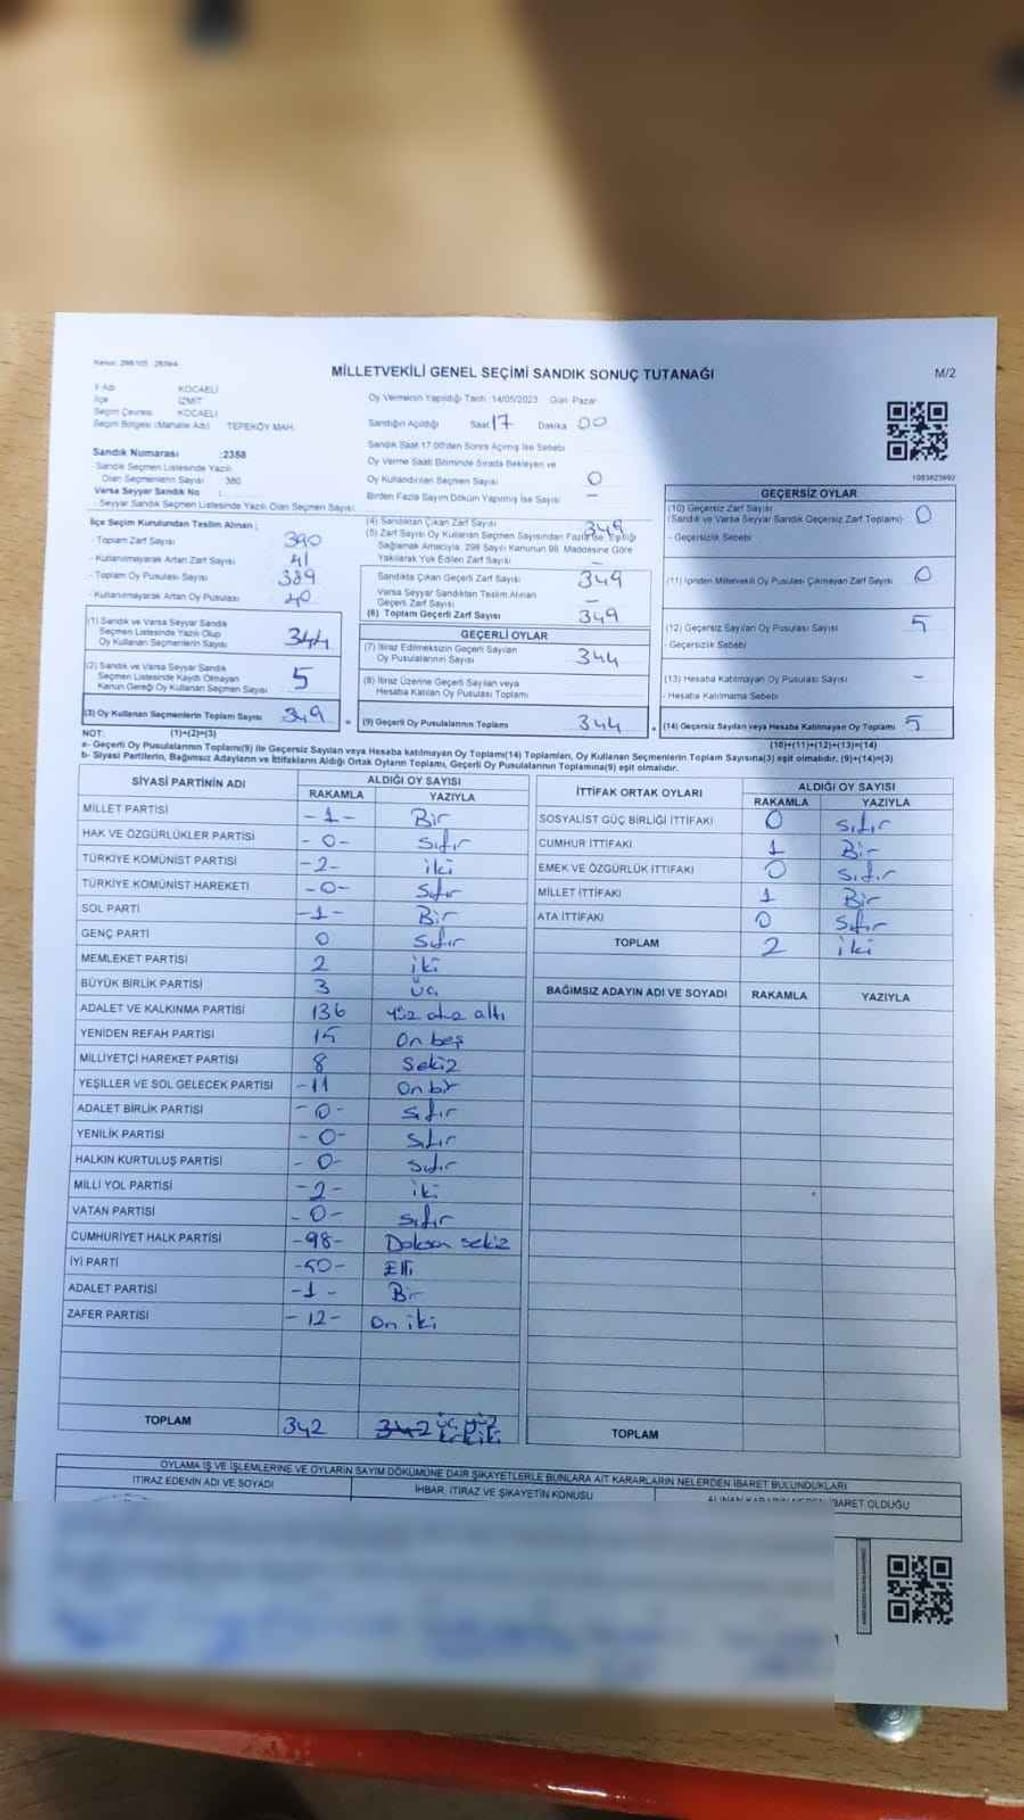 MİLLETVEKİLİ GENEL SEÇİMİ SANDIK SONUÇ TUTANAĞI
M/2
İl Adı KOCAELİ
İlçe İZMİT
Seçim Çevresi KOCAELİ
Seçim Bölgesi (Mahalle Adı) TEPEKÖY MAH.
Sandık Numarası :2358
Sandık Seçmen Listesinde Yazılı
Olan Seçmenlerin Sayısı 380
Varsa Seyyar Sandık No :
Seyyar Sandık Seçmen Listesinde Yazılı Olan Seçmen Sayısı
Oy Vermenin Yapıldığı Tarih :14/05/2023 Gün Pazar
Sandığın Açıldığı Saat 17 Dakika 00
Sandık Saat 17.00'den Sonra Açılmış İse Sebebi
Oy Verme Saati Bitiminde Sırada Bekleyen ve
Oy Kullandırılan Seçmen Sayısı 0
Birden Fazla Sayım Döküm Yapılmış İse Sayısı –
İlçe Seçim Kurulundan Teslim Alınan :
- Toplam Zarf Sayısı 390
- Kullanılmayarak Artan Zarf Sayısı 41
- Toplam Oy Pusulası Sayısı 389
- Kullanılmayarak Artan Oy Pusulası 40
(1) Sandık ve Varsa Seyyar Sandık
Seçmen Listesinde Yazılı Olup
Oy Kullanan Seçmenlerin Sayısı 344
(2) Sandık ve Varsa Seyyar Sandık
Seçmen Listesinde Kaydı Olmayan
Kanun Gereği Oy Kullanan Seçmen Sayısı 5
(3) Oy Kullanan Seçmenlerin Toplam Sayısı 349
(4) Sandıktan Çıkan Zarf Sayısı 349
(5) Zarf Sayısı Oy Kullanan Seçmen Sayısından Fazla ise, Eşitliği
Sağlamak Amacıyla, 298 Sayılı Kanunun 98. Maddesine Göre
Yakılarak Yok Edilen Zarf Sayısı –
Sandıkta Çıkan Geçerli Zarf Sayısı 349
Varsa Seyyar Sandıktan Teslim Alınan
Geçerli Zarf Sayısı –
(6) Toplam Geçerli Zarf Sayısı 349
GEÇERLİ OYLAR
(7) İtiraz Edilmeksizin Geçerli Sayılan
Oy Pusulalarının Sayısı 344
(8) İtiraz Üzerine Geçerli Sayılan veya
Hesaba Katılan Oy Pusulası Toplamı
(9) Geçerli Oy Pusulalarının Toplamı 344
GEÇERSİZ OYLAR
(10) Geçersiz Zarf Sayısı
(Sandık ve Varsa Seyyar Sandık Geçersiz Zarf Toplamı) 0
- Geçersizlik Sebebi
(11) İçinden Milletvekili Oy Pusulası Çıkmayan Zarf Sayısı 0
(12) Geçersiz Sayılan Oy Pusulası Sayısı 5
- Geçersizlik Sebebi
(13) Hesaba Katılmayan Oy Pusulası Sayısı –
- Hesaba Katılmama Sebebi
(14) Geçersiz Sayılan veya Hesaba Katılmayan Oy Toplamı 5
NOT: (1)+(2)=(3)
(10)+(11)+(12)+(13)=(14)
a- Geçerli Oy Pusulalarının Toplamı(9) ile Geçersiz Sayılan veya Hesaba katılmayan Oy Toplamı(14) Toplamları, Oy Kullanan Seçmenlerin Toplam Sayısına(3) eşit olmalıdır. (9)+(14)=(3)
b- Siyasi Partilerin, Bağımsız Adayların ve İttifakların Aldığı Ortak Oyların Toplamı, Geçerli Oy Pusulalarının Toplamına(9) eşit olmalıdır.
SİYASİ PARTİNİN ADI ALDIĞI OY SAYISI
RAKAMLA YAZIYLA
MİLLET PARTİSİ -1- Bir
HAK VE ÖZGÜRLÜKLER PARTİSİ -0- Sıfır
TÜRKİYE KOMÜNİST PARTİSİ -2- iki
TÜRKİYE KOMÜNİST HAREKETİ -0- Sıfır
SOL PARTİ -1- Bir
GENÇ PARTİ 0 Sıfır
MEMLEKET PARTİSİ 2 iki
BÜYÜK BİRLİK PARTİSİ 3 üç
ADALET VE KALKINMA PARTİSİ 136 Yüz otuz altı
YENİDEN REFAH PARTİSİ 15 On beş
MİLLİYETÇİ HAREKET PARTİSİ 8 Sekiz
YEŞİLLER VE SOL GELECEK PARTİSİ -11 On bir
ADALET BİRLİK PARTİSİ -0- sıfır
YENİLİK PARTİSİ -0- sıfır
HALKIN KURTULUŞ PARTİSİ -0- sıfır
MİLLİ YOL PARTİSİ -2- iki
VATAN PARTİSİ -0- sıfır
CUMHURİYET HALK PARTİSİ -98- Doksan sekiz
İYİ PARTİ -50- Elli
ADALET PARTİSİ -1- Bir
ZAFER PARTİSİ -12- On iki
TOPLAM 342 342
İTTİFAK ORTAK OYLARI ALDIĞI OY SAYISI
RAKAMLA YAZIYLA
SOSYALİST GÜÇ BİRLİĞİ İTTİFAKI 0 sıfır
CUMHUR İTTİFAKI 1 Bir
EMEK VE ÖZGÜRLÜK İTTİFAKI 0 sıfır
MİLLET İTTİFAKI 1 Bir
ATA İTTİFAKI 0 Sıfır
TOPLAM 2 iki
BAĞIMSIZ ADAYIN ADI VE SOYADI RAKAMLA YAZIYLA
TOPLAM
OYLAMA İŞ VE İŞLEMLERİNE VE OYLARIN SAYIM DÖKÜMÜNE DAİR ŞİKAYETLERLE BUNLARA AİT KARARLARIN NELERDEN İBARET BULUNDUKLARI
İTİRAZ EDENİN ADI VE SOYADI İHBAR, İTİRAZ VE ŞİKAYETİN KONUSU OLDUĞU